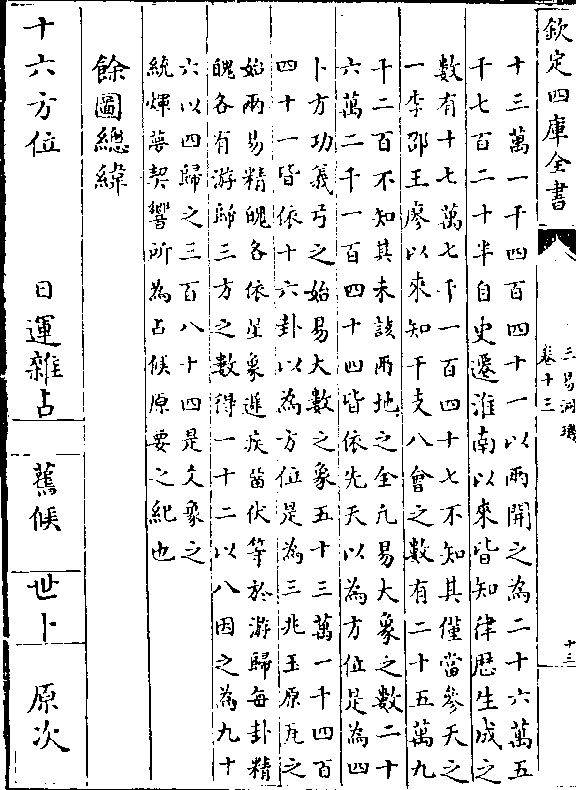 欽定四庫全書
三易洞璣
卷十三
十三
十三萬一千四百四十一以兩開之為二十六萬五
千七百二十半自史遷淮南以來皆知律歴生成之
數有十七萬七千一百四十七不知其僅當參天之
一李邵王廖以來知干支八會之數有二十五萬九
千二百不知其未該兩地之全凡易大象之數二十
六萬二千一百四十四皆依先天以為方位是為四
卜方功義弓之始易大數之象五十三萬一千四百
四十一皆依十六卦以為方位是為三兆玉原瓦之
始兩易精魄各依星象遲疾留伏等於游歸每卦精
魄各有游歸三方之數得一十二以八因之為九十
六以四歸之三百八十四是爻象之
統煇夢契響所為占候原要之紀也
餘圖總緯
十六方位
日運雜占
舊候
世卜
原次